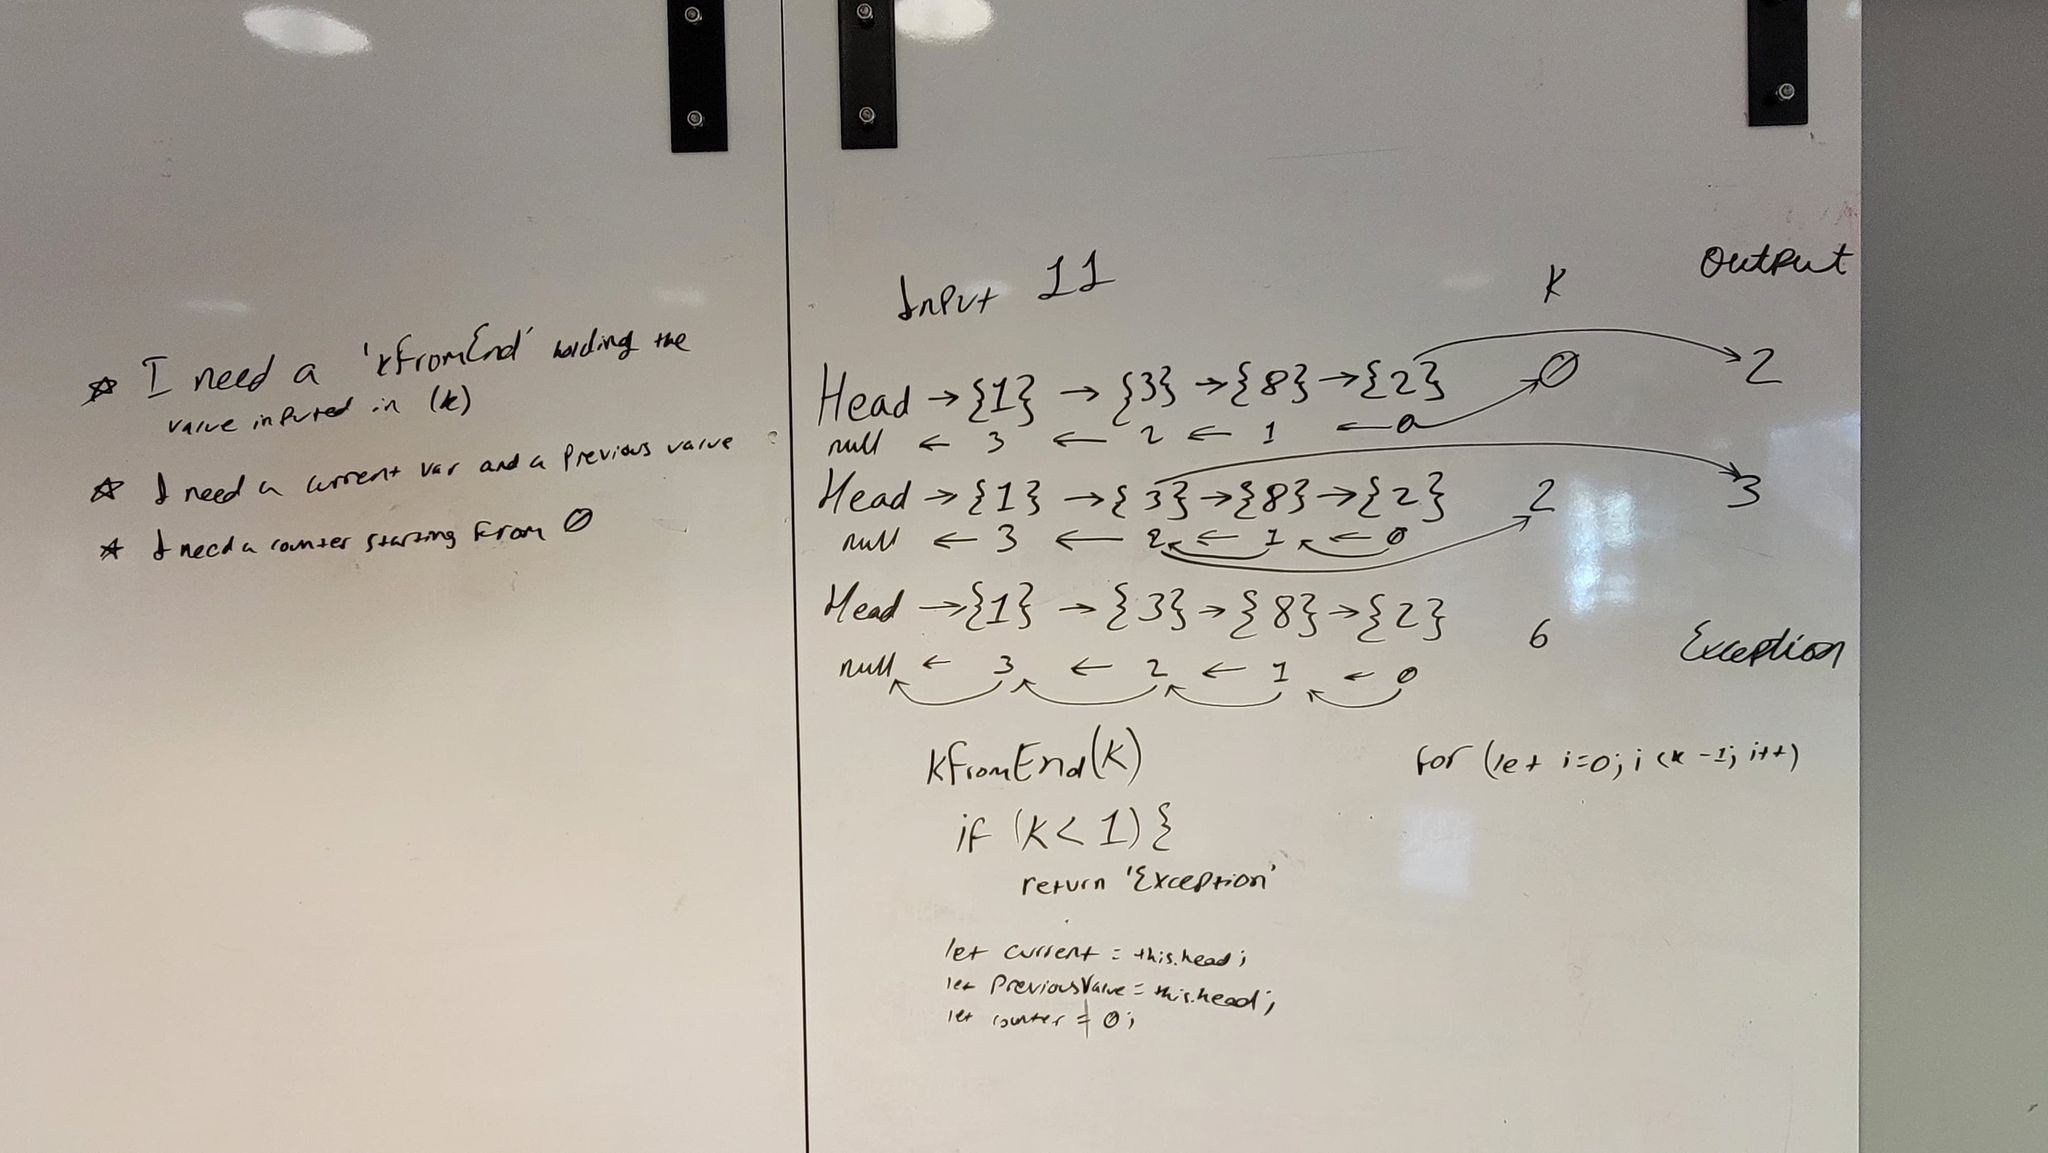 ☆ I need a 'kFromEnd' holding the
value inputed in (k)
☆ I need a current var and a Previous value
☆ I need a counter starting from 0
Input 11 K Output
Head → {1} → {3} → {8} → {2} 0 2
null ← 3 ← 2 ← 1 ← 0
Head → {1} → {3} → {8} → {2} 2 3
null ← 3 ← 2 ← 1 ← 0
Head → {1} → {3} → {8} → {2} 6 Exception
null ← 3 ← 2 ← 1 ← 0
kFromEnd(k)
for (let i=0; i<k-1; i++)
if (k < 1) {
return 'Exception'
let current = this.head;
let PreviousValue = this.head;
let counter = 0;